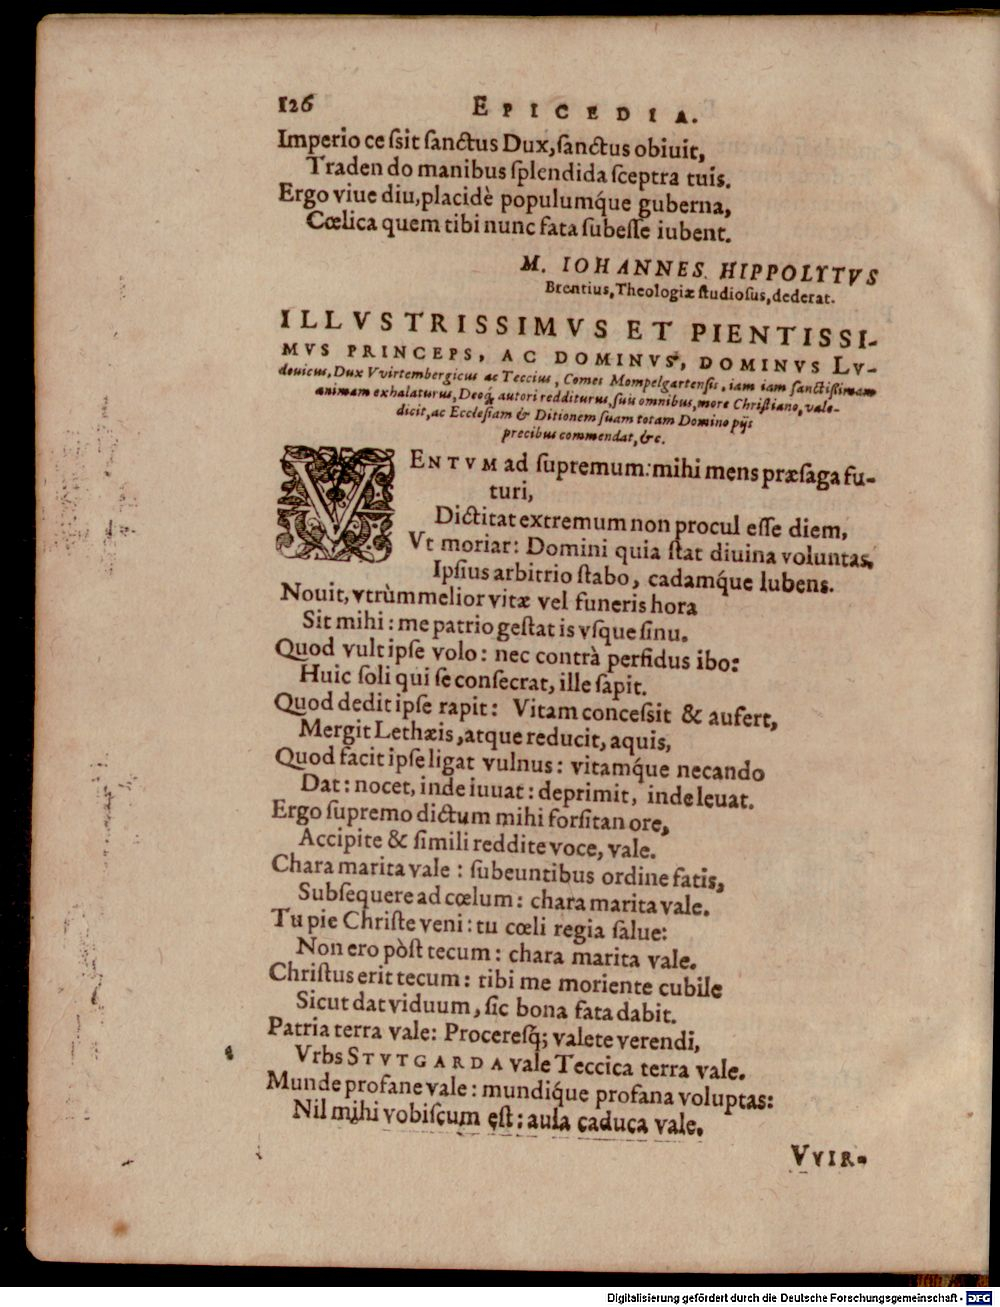 126 EPICEDIA.
Imperio ceſsit ſanctus Dux, ſanctus obiuit,
Traden do manibus ſplendida ſceptra tuis.
Ergo viue diu, placidè populumq́ue guberna,
Cœlica quem tibi nunc fata ſubeſſe iubent.
M. IOHANNES HIPPOLYTVS
Brentius, Theologiæ ſtudioſus, dederat.
ILLVSTRISSIMVS ET PIENTISSI-
MVS PRINCEPS, AC DOMINVS, DOMINVS LV-
douicus, Dux VVirtembergicus ac Teccius, Comes Mompelgartenſis, iam iam ſanctiſſimam
animam exhalaturus, Deoq́; autori redditurus, ſuis omnibus, more Chriſtiano, vale-
dicit, ac Eccleſiam & Ditionem ſuam totam Domino pijs
precibus commendat, &c.
VENTVM ad ſupremum: mihi mens præſaga fu-
turi,
Dictitat extremum non procul eſſe diem,
Vt moriar: Domini quia ſtat diuina voluntas,
Ipſius arbitrio ſtabo, cadamq́ue lubens.
Nouit, vtrùm melior vitæ vel funeris hora
Sit mihi: me patrio geſtat is vſque ſinu.
Quod vult ipſe volo: nec contrà perfidus ibo:
Huic ſoli qui ſe conſecrat, ille ſapit.
Quod dedit ipſe rapit: Vitam conceſsit & aufert,
Mergit Lethæis, atque reducit, aquis,
Quod facit ipſe ligat vulnus: vitamq́ue necando
Dat: nocet, inde iuuat: deprimit, inde leuat.
Ergo ſupremo dictum mihi forſitan ore,
Accipite & ſimili reddite voce, vale.
Chara marita vale: ſubeuntibus ordine fatis,
Subſequere ad cœlum: chara marita vale.
Tu pie Chriſte veni: tu cœli regia ſalue:
Non ero pòſt tecum: chara marita vale.
Chriſtus erit tecum: tibi me moriente cubile
Sicut dat viduum, ſic bona fata dabit.
Patria terra vale: Procereſq́; valete verendi,
Vrbs STVTGARDA vale Teccica terra vale.
Munde profane vale: mundiq́ue profana voluptas:
Nil mihi vobiſcum eſt: aula caduca vale.
VVIR-
Digitalisierung gefördert durch die Deutsche Forschungsgemeinschaft - DFG